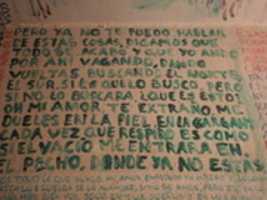 PERO YA NO TE PUEDO HABLAR
DE ESTAS COSAS, DIGAMOS QUE
TODO SE ACABO Y QUE YO ANDO
POR AHI VAGANDO, DANDO
VUELTAS, BUSCANDO EL NORTE,
EL SUR, SI ES QUE LO BUSCO, PERO
SI NO LO BUSCARA, ¿QUE ES ESTO?
OH MI AMOR, TE EXTRAÑO, ME
DUELES EN LA PIEL, EN LA GARGANTA
CADA VEZ QUE RESPIRO ES COMO
SI EL VACIO ME ENTRARA EN
EL PECHO, DONDE YA NO ESTAS